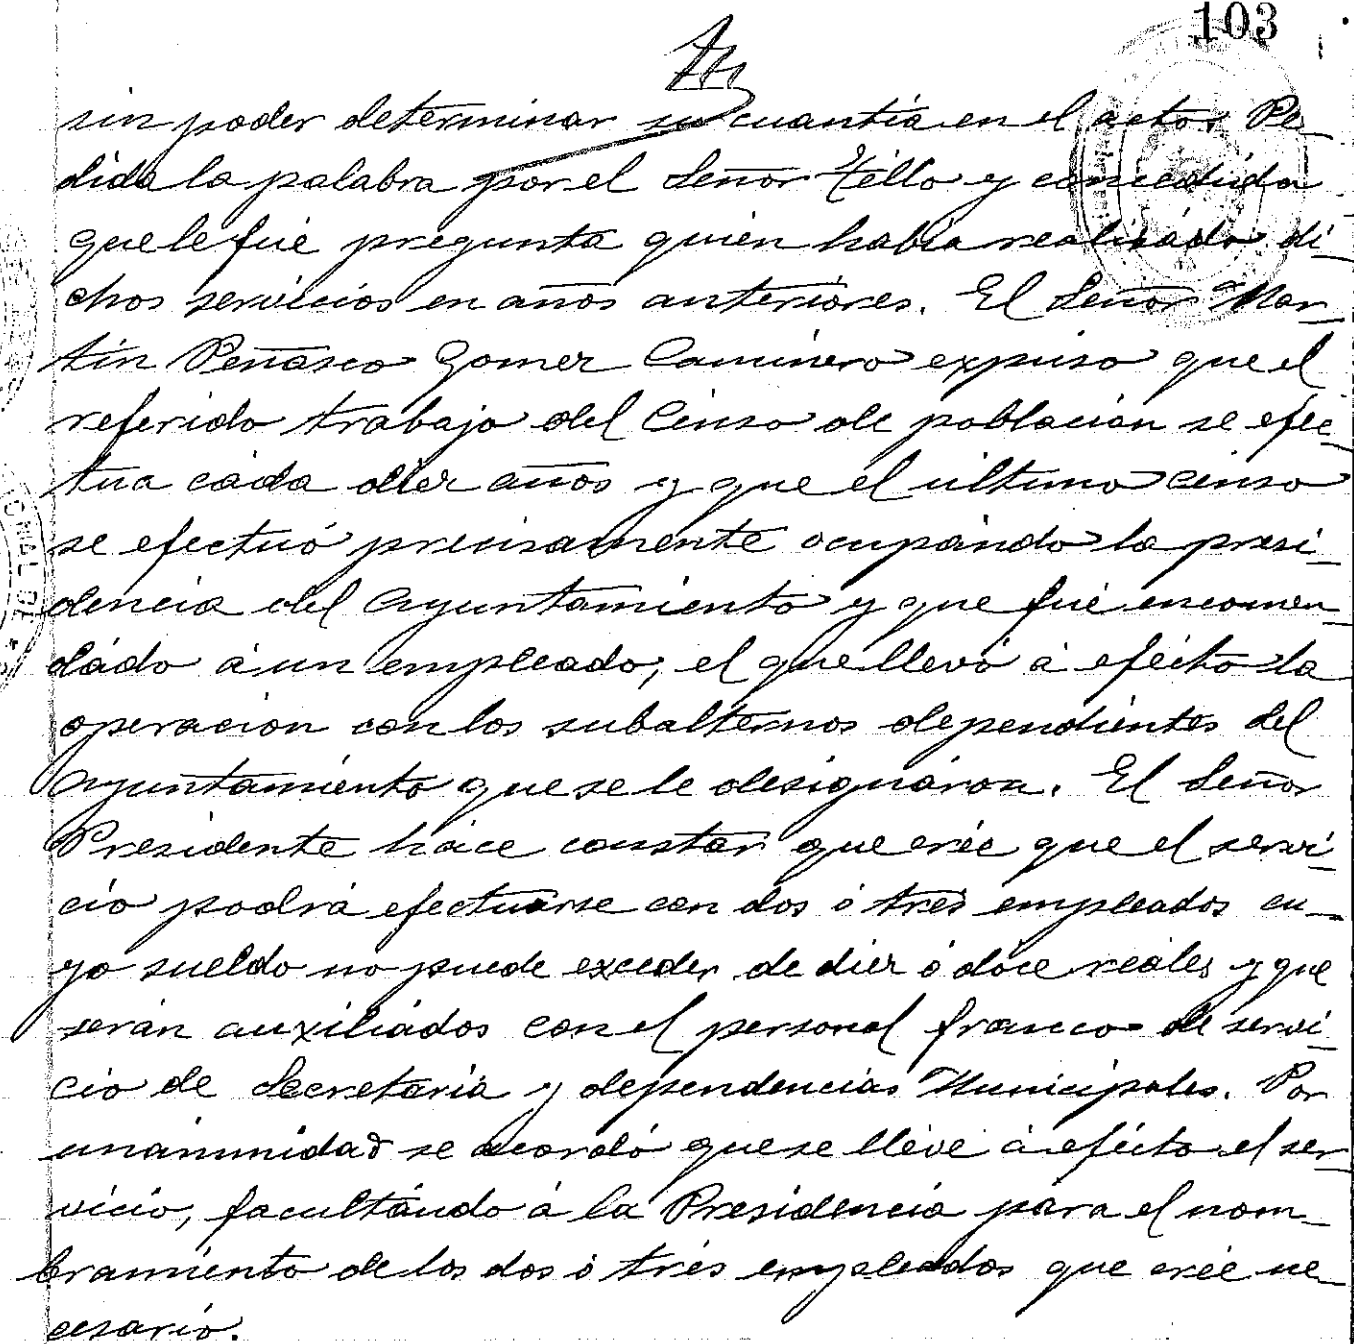 103
sin poder determinar su cuantía en el acto. Pe-
dida la palabra por el Señor Tello y concedida
que le fué pregunta quién había realizado di-
chos servicios en años anteriores. El Señor Mar-
tín Peñasco Gomez Caminero expuso que el
referido trabajo del Censo de población se efec-
tua cada diez años y que el último censo
se efectuó precisamente ocupando la presi-
dencia del Ayuntamiento y que fué encomen-
dado á un empleado, el que llevó á efecto la
operación con los subalternos dependientes del
Ayuntamiento que se le designaron. El Señor
Presidente hace constar que crée que el servi-
cio podrá efectuarse con dos ó tres empleados cu-
yo sueldo no puede exceder de diez ó doce reales y que
serán auxiliados con el personal franco de servi-
cio de Secretaría y dependencias Municipales. Por
unanimidad se acordó que se lleve á efecto el ser-
vicio, facultando á la Presidencia para el nom-
bramiento de los dos ó tres empleados que crée ne-
cesario.